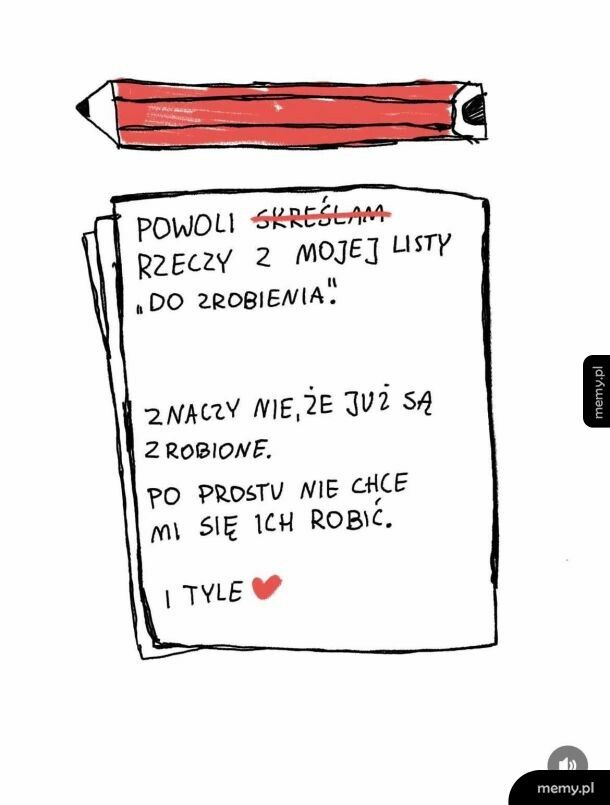 POWOLI SKREŚLAM
RZECZY Z MOJEJ LISTY
„DO ZROBIENIA".
ZNACZY NIE, ŻE JUŻ SĄ
ZROBIONE.
PO PROSTU NIE CHCE
MI SIĘ ICH ROBIĆ.
I TYLE
memy.pl
memy.pl